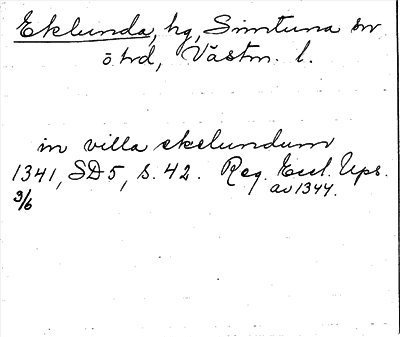 Eklunda, hg, Simtuna sn
ö hd, Västm. l.
in villa ekelundum
1341, SD 5, s. 42. Reg. Eccl. Ups.
3/6 av 1344.